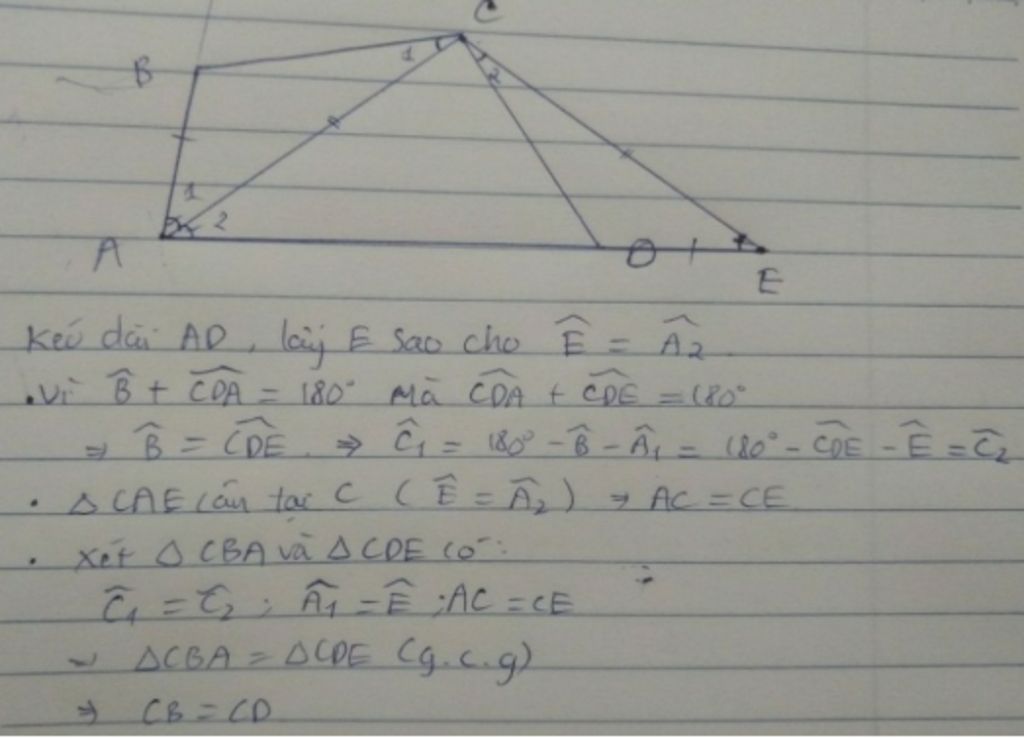 C
B 1 2
1
A 2 D E
Kéo dài AD, lấy E sao cho Ê = Â₂
. Vì B̂ + \widehat{CDA} = 180° Mà \widehat{CDA} + \widehat{CDE} = 180°
⇒ B̂ = \widehat{CDE}. ⇒ Ĉ₁ = 180° - B̂ - Â₁ = 180° - \widehat{CDE} - Ê = Ĉ₂
. Δ CAE cân tại C ( Ê = Â₂ ) ⇒ AC = CE
. Xét Δ CBA và Δ CDE có :
Ĉ₁ = Ĉ₂ ; Â₁ = Ê ; AC = CE
⇒ ΔCBA = ΔCDE (g.c.g)
⇒ CB = CD